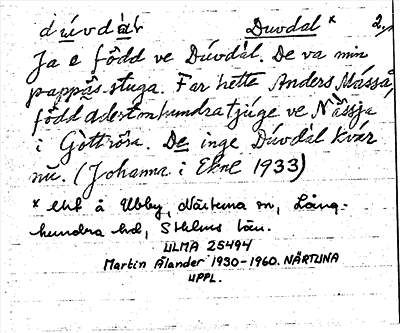 dúvdàl Duvdal x 2,
Ja e fôdd ve Dúvdàl. De va min
pappàs stuga. Far hette Anders Mássa,
fôdd adertonhundratjúge ve Nâssja
i Gòttröra. De inge Dúvdàl kvár
nu. (Johanna i Ekne 1933)
x eht å Ubby, Närtuna sn, Lång-
hundra hd, Sthlms län.
ULMA 25494
Martin Ålander 1930-1960. NÄRTUNA
UPPL.